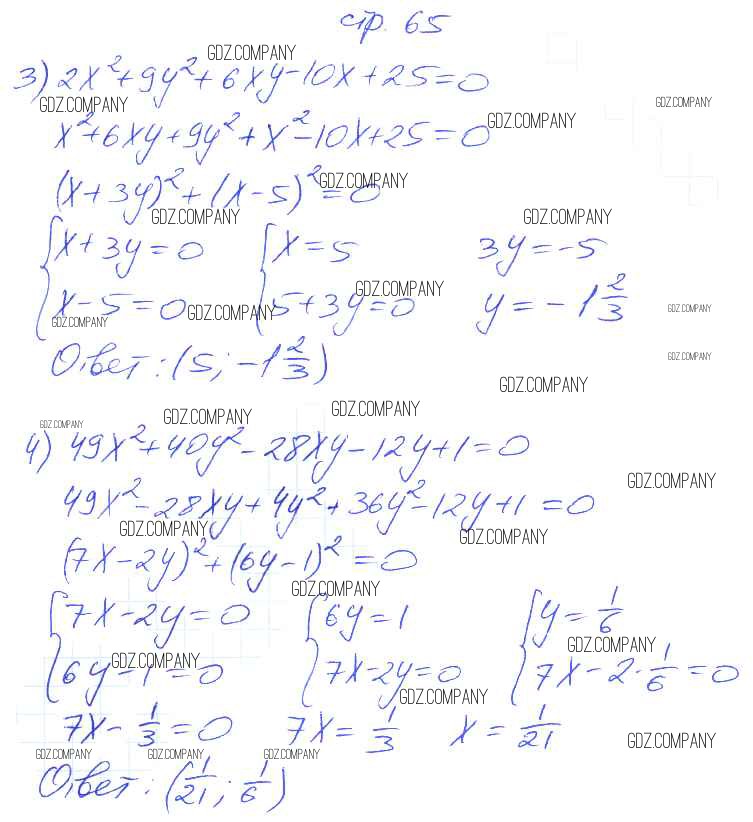 стр. 65
GDZ.COMPANY
3) 2x²+9y²+6xy-10x+25=0
GDZ.COMPANY GDZ.COMPANY
x²+6xy+9y²+x²-10x+25=0 GDZ.COMPANY
(x+3y)²+(x-5)²=0 GDZ.COMPANY
GDZ.COMPANY GDZ.COMPANY
{x+3y=0 {x=5 3y=-5
GDZ.COMPANY
x-5=0 5+3y=0 y=-1 2/3
GDZ.COMPANY GDZ.COMPANY GDZ.COMPANY
Ответ: (5; -1 2/3) GDZ.COMPANY
GDZ.COMPANY
GDZ.COMPANY GDZ.COMPANY GDZ.COMPANY
4) 49x²+40y²-28xy-12y+1=0
GDZ.COMPANY
49x²-28xy+4y²+36y²-12y+1=0
GDZ.COMPANY GDZ.COMPANY
(7x-2y)²+(6y-1)²=0
GDZ.COMPANY
{7x-2y=0 {6y=1 {y=1/6
GDZ.COMPANY GDZ.COMPANY
6y-1=0 7x-2y=0 7x-2·1/6=0
GDZ.COMPANY
7x-1/3=0 7x=1/3 x=1/21
GDZ.COMPANY
GDZ.COMPANY GDZ.COMPANY GDZ.COMPANY
Ответ: (1/21; 1/6)